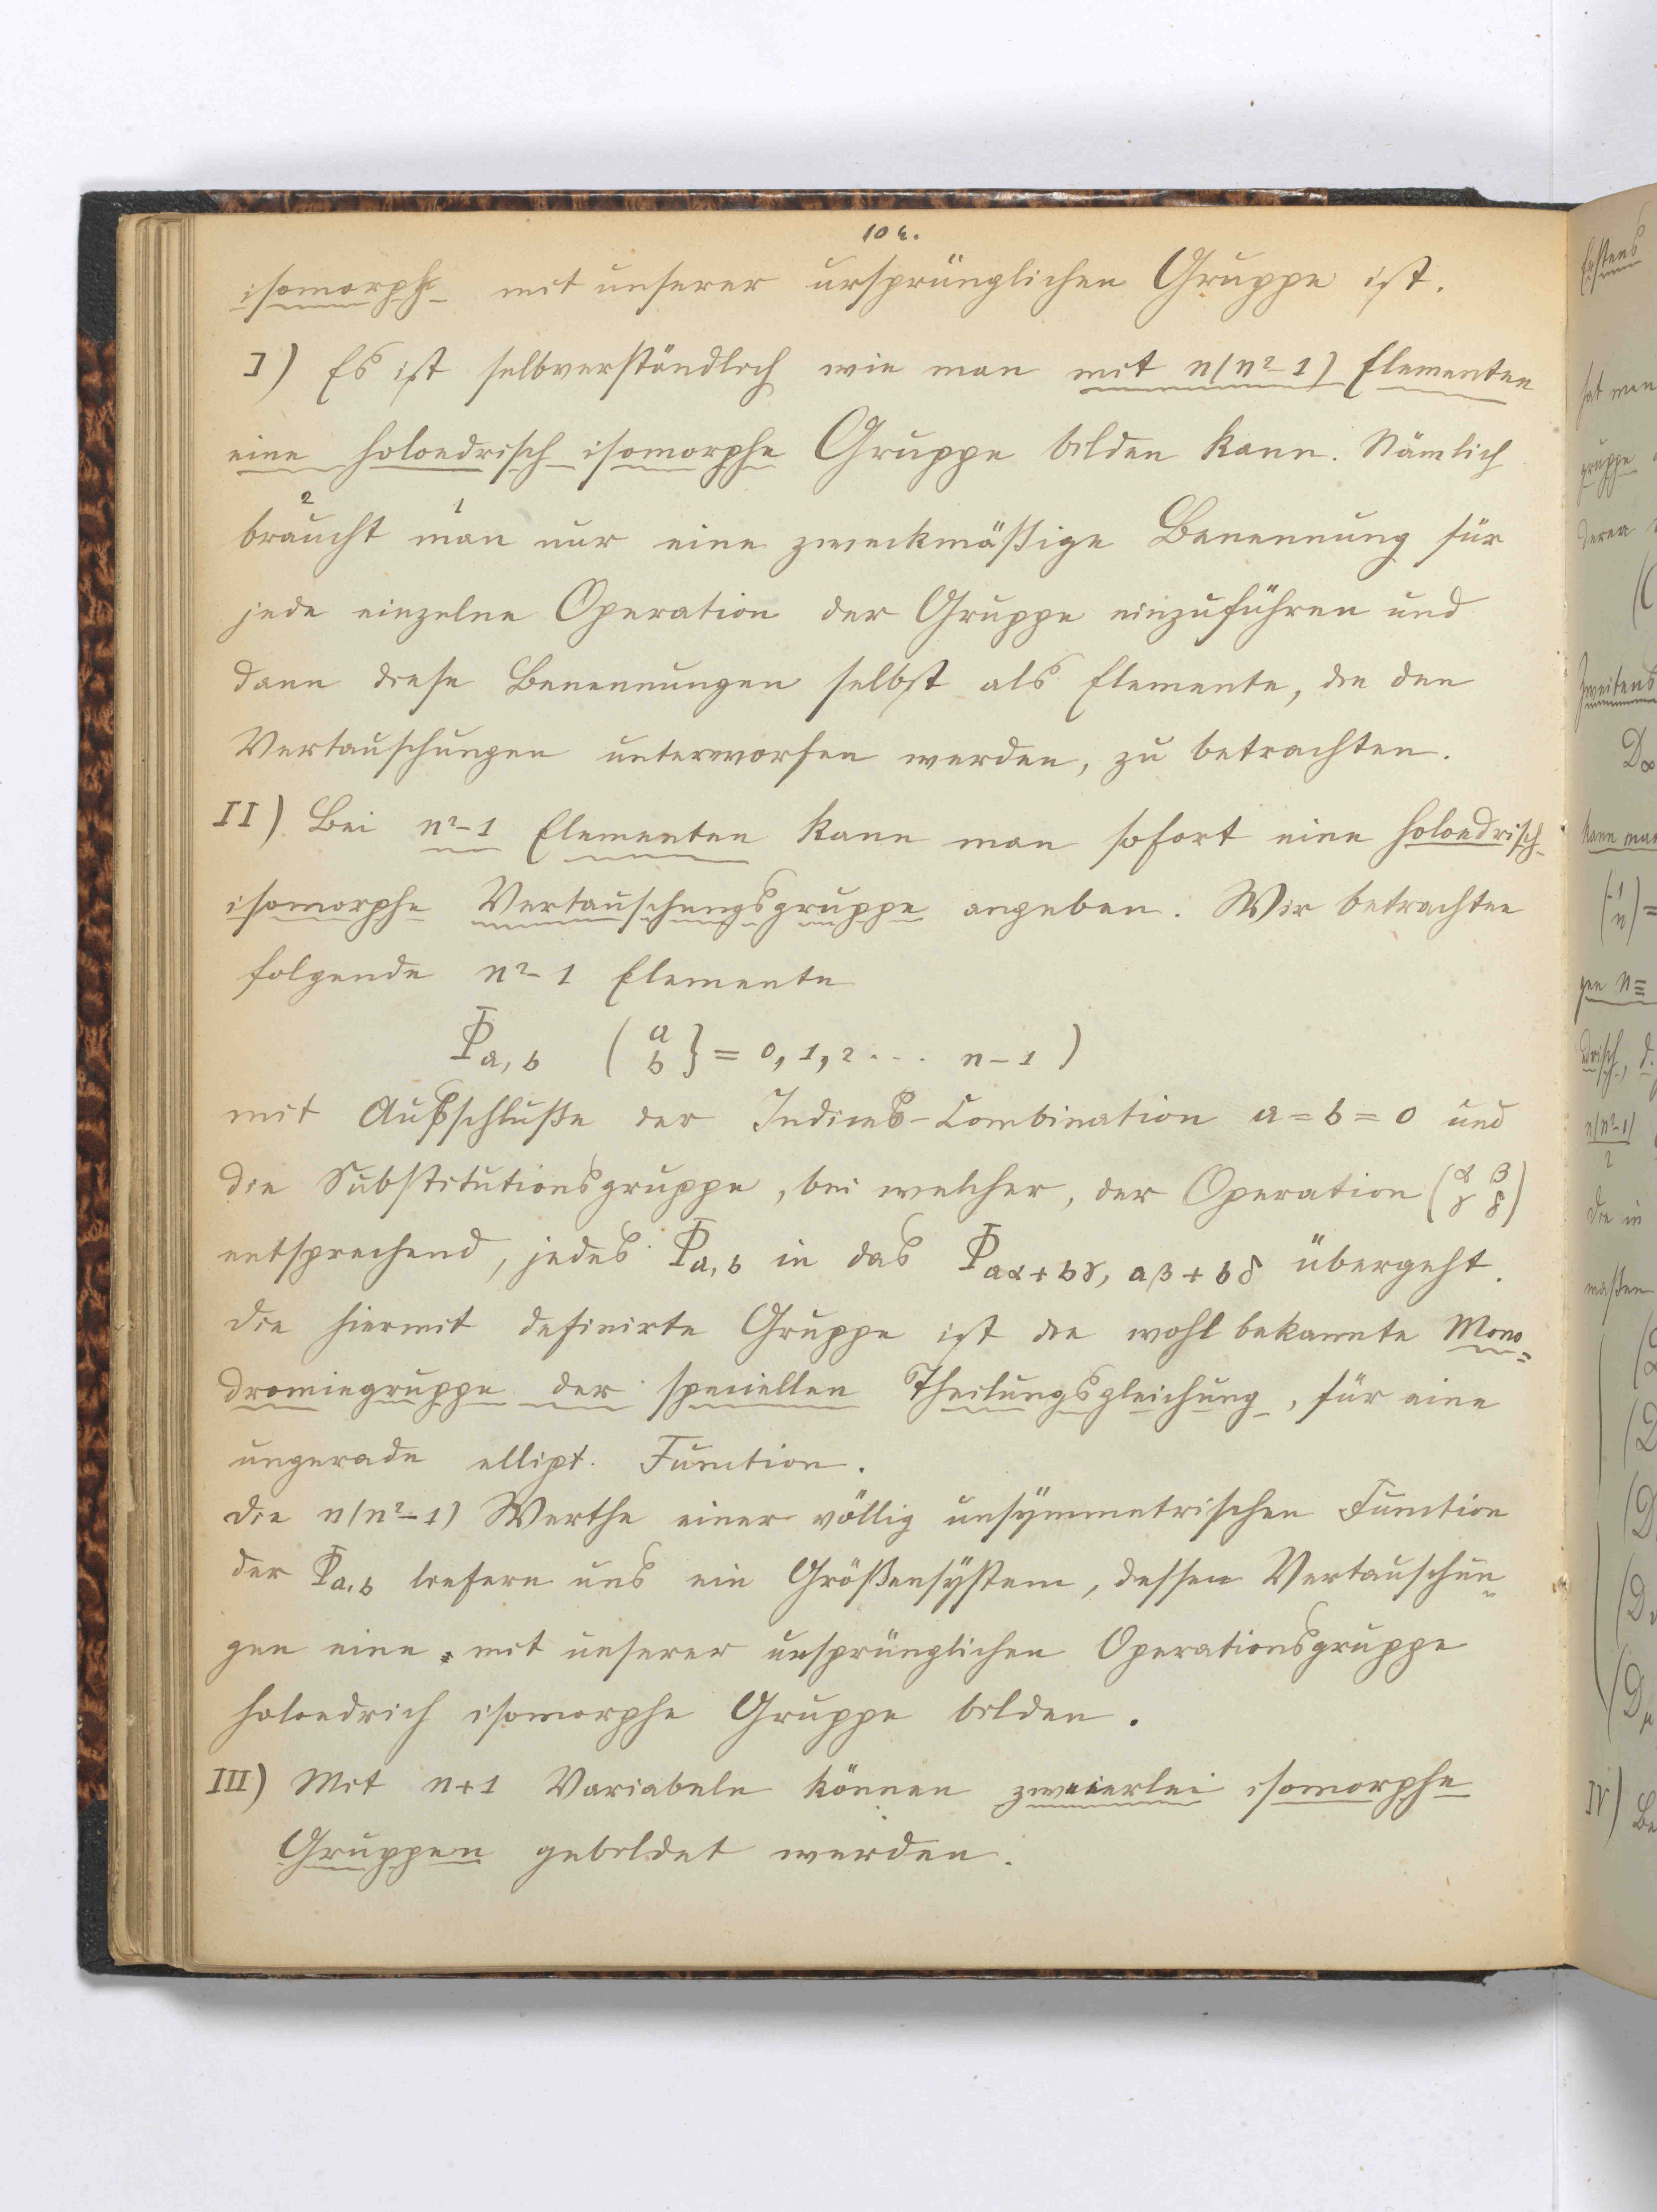 104.
isomorph mit unserer ursprünglichen Gruppe ist.
I) Es ist selbverständlich wie man mit n(n²-1) Elementen
eine holoedrisch isomorphe Gruppe bilden kann. Nämlich
2 1
braucht man nur eine zweckmäßige Benennung für
jede einzelne Operation der Gruppe einzuführen und
dann diese Benennungen selbst als Elemente, die den
Vertauschungen unterworfen werden, zu betrachten.
II) Bei n²-1 Elementen kann man sofort eine holoedrisch
isomorphe Vertauschungsgruppe angeben. Wir betrachten
folgende n²-1 Elemente
Φa,b (a b} = 0, 1, 2 ... n-1)
mit Ausschluße der Indices-Combination a = b = 0 und
die Substitutionsgruppe, bei welcher, der Operation (α β γ δ)
entsprechend, jedes Φa,b in das Φaα+bγ, aβ+bδ übergeht.
die hiermit definirte Gruppe ist die wohl bekannte Mono=
dromiegruppe der speciellen Theilungsgleichung, für eine
ungerade ellipt. Function.
die n(n²-1) Werthe einer völlig unsymmetrischen Function
der Φa,b liefern uns ein Größensystem, dessen Vertauschun=
gen eine mit unserer ursprünglichen Operationsgruppe
holoedrich isomorphe Gruppe bilden.
III) Mit n+1 Variabeln können zweierlei isomorphe
Gruppen gebildet werden.
Erstens
hat man
gruppe
deren
Zweitens
D∞
kann man
gen n≡
drisch, d.
n(n²-1)
2
die in
maßen
IV) Be